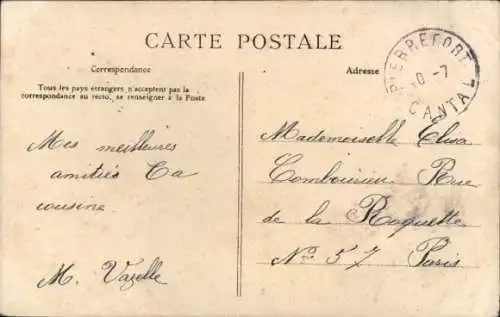 CARTE POSTALE
Correspondance
Tous les pays étrangers n'acceptent pas la
correspondance au recto, se renseigner à la Poste
Mes meilleures
amitiés Ta
cousine
M. Vazelle
Adresse
PIERREFORT
10 -7
CANTAL
Mademoiselle Elisa
Combourieu Rue
de la Roquette
No 57 Paris